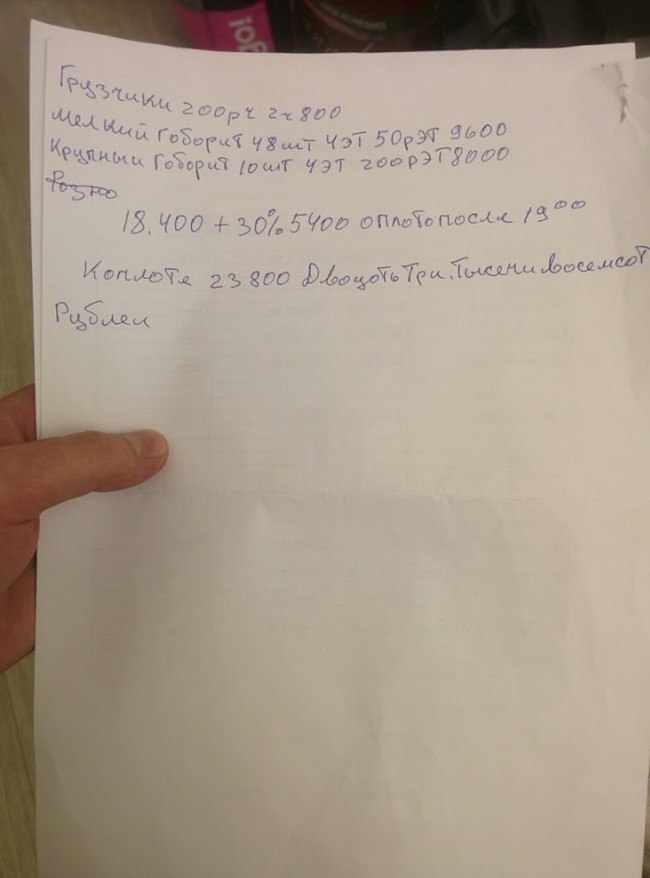 Грузчики 200рч 2ч 800
Мелкий Гоборит 48шт 4эт 50рэт 9600
Крупный Гоборит 10шт 4эт 200рэт 8000
18.400 + 30% 5400 оплото после 19 00
К оплоте 23.800 Двоцоть Три. Тысечи восемсот
Рублей